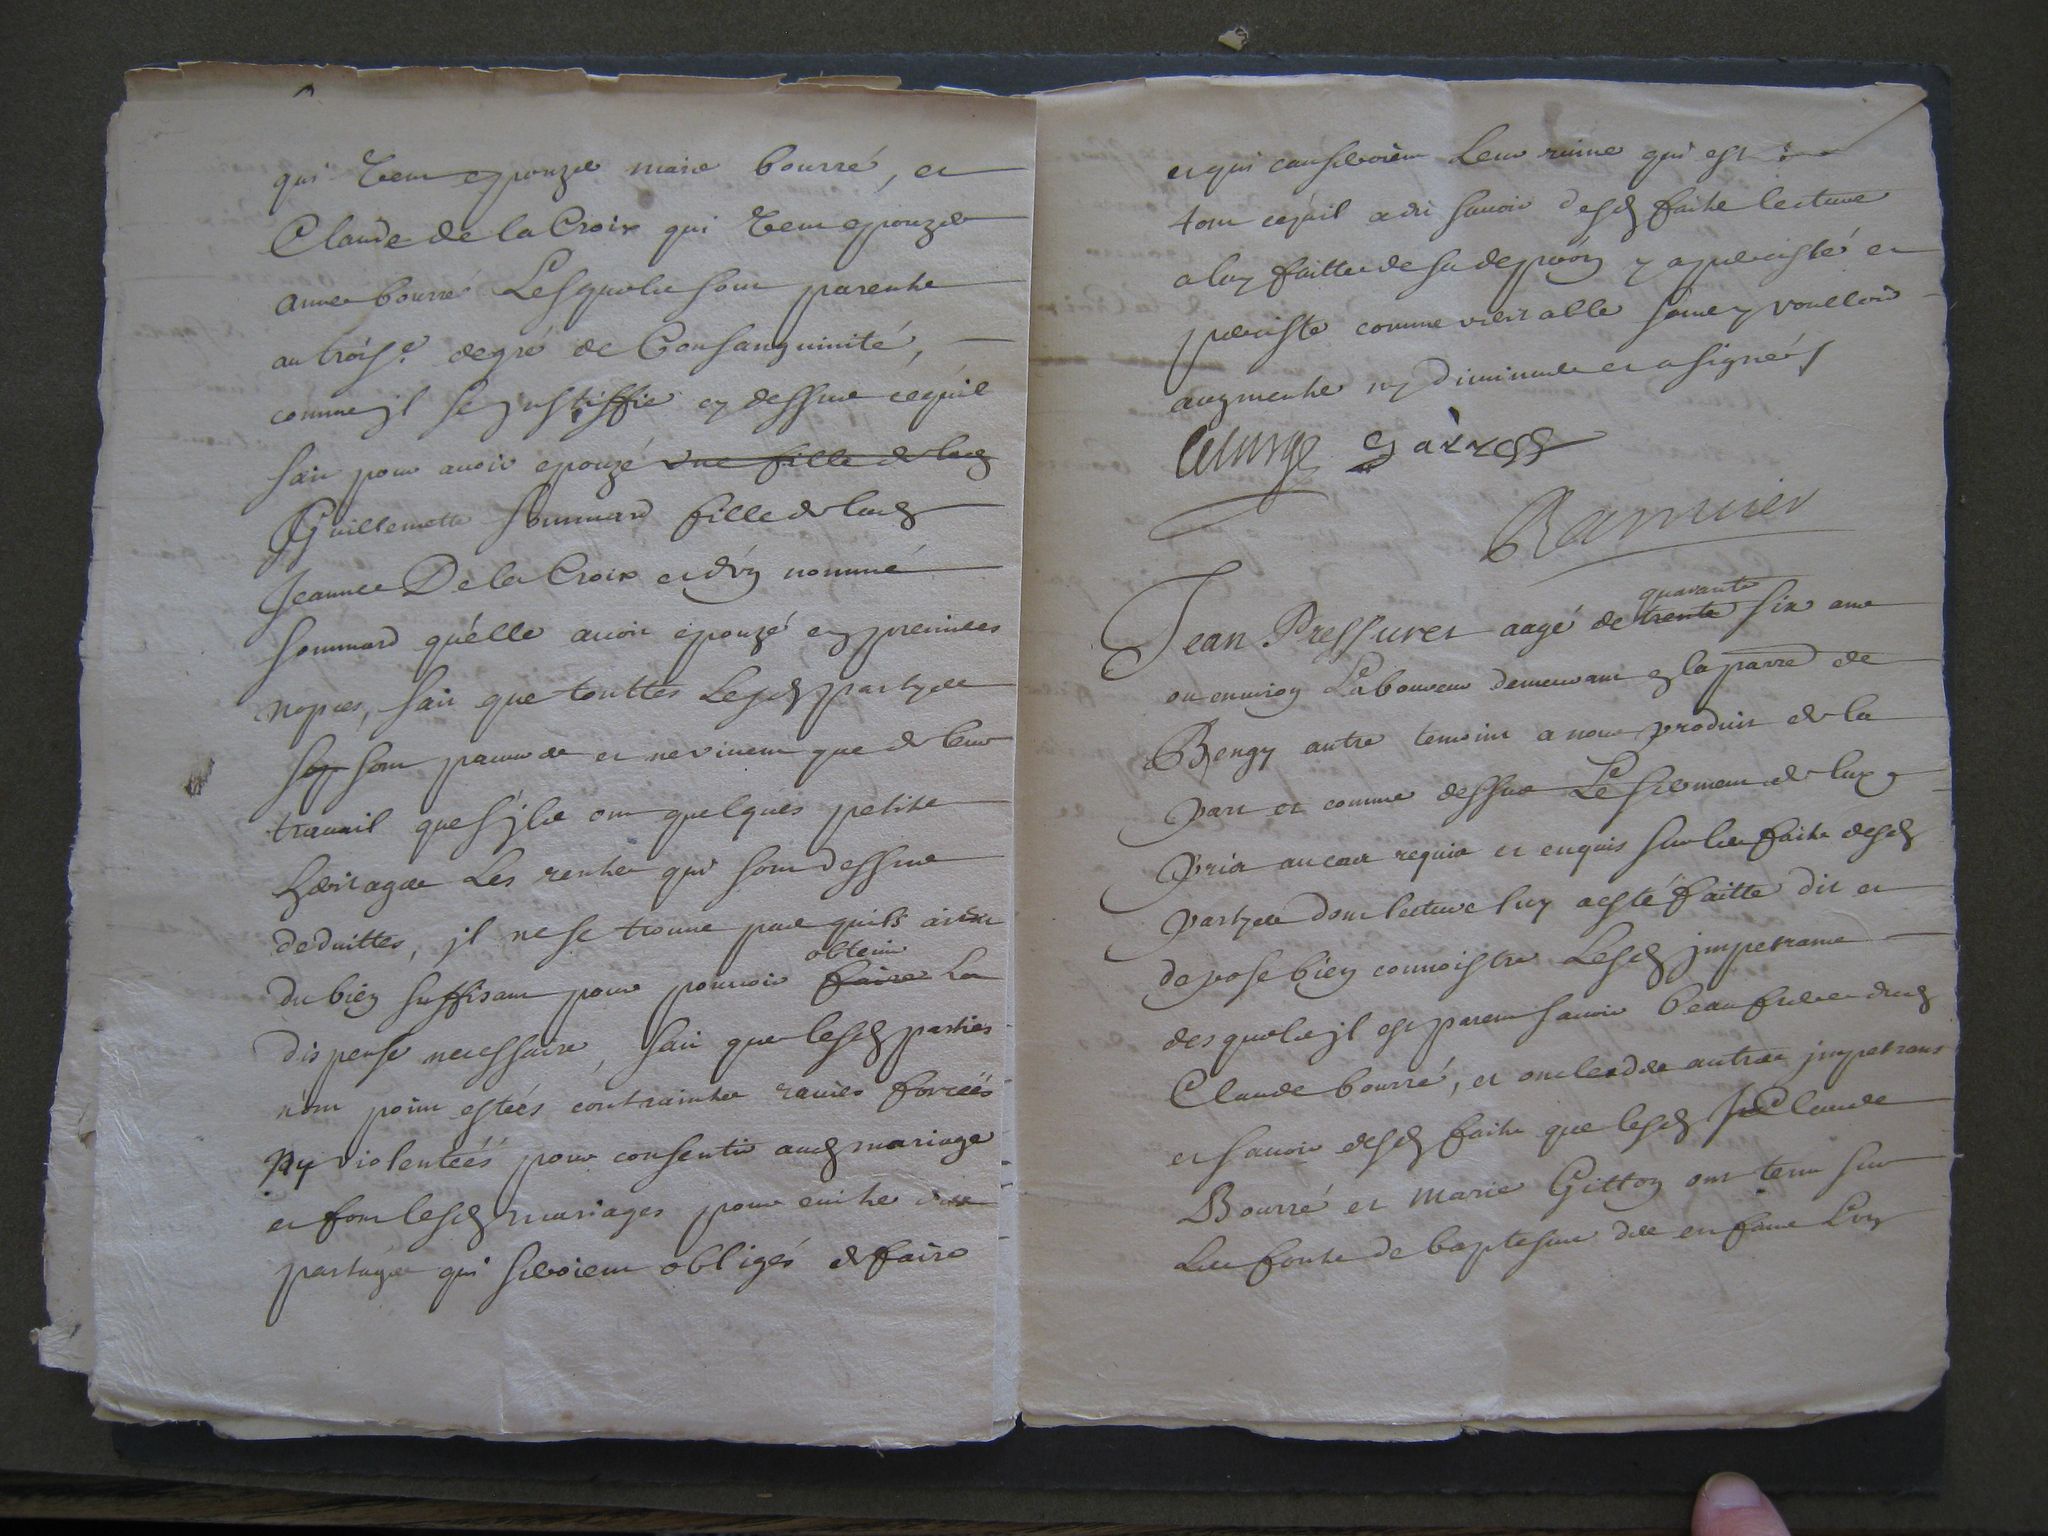 qui veut epouzer marie bourré, et
Claude de la Croix qui veut epouzer
anne bourré Lesquels sont parents
au troise. degré de Consanguinité,
comme jl se justiffie cy dessus ce qu'il
sait pour avoir epouzé une fille de lad
Guillemette Sommard fille de lad
Jeanne De la Croix et d'un nommé
Sommard qu'elle avoit épouzé en premieres
nopces, sait que touttes Lesd partyes
sont pauvres et ne vivent que de leur
travail que s'jls ont quelques petits
heritages Les rentes qui sont dessus
deduittes, jl ne se trouve pas quils aient
du bien suffisant pour pouvoir faire obtenir La
dispense necessaire, sait que lesd parties
n'ont point estéés contraintes ravies forcéés
ny violentéés pour consentir aud mariage
et font lesd mariages pour eviter des
partages qui seroient obligés de faire
et qui causeroient Leur ruine qui est
tout ce qu'il a dit savoir desd faits lecture
a luy faitte de sa depon y a persisté et
persiste comme veritable sans y vouloir
augmenter ny diminuer et a signé
Ramier
Jean Pressuret aagé de trente quarante six ans
ou environ Laboureur demeurant en la parre de
Bengy autre temoint a nous produit de la
part et comme dessus Le serment de luy
pris au cas requis et enquis sur les faits desd
partyes dont lecture luy a esté faitte dit et
depose bien connoistre Lesd jmpetrants
desquels jl est parent savoir beau frere dud
Claude bourré, et oncle des autres jmpetrans
et savoir desd faits que lesd Claude
Bourré et Marie Gitton ont tenu sur
Les fonts de baptesme des enfans L'un